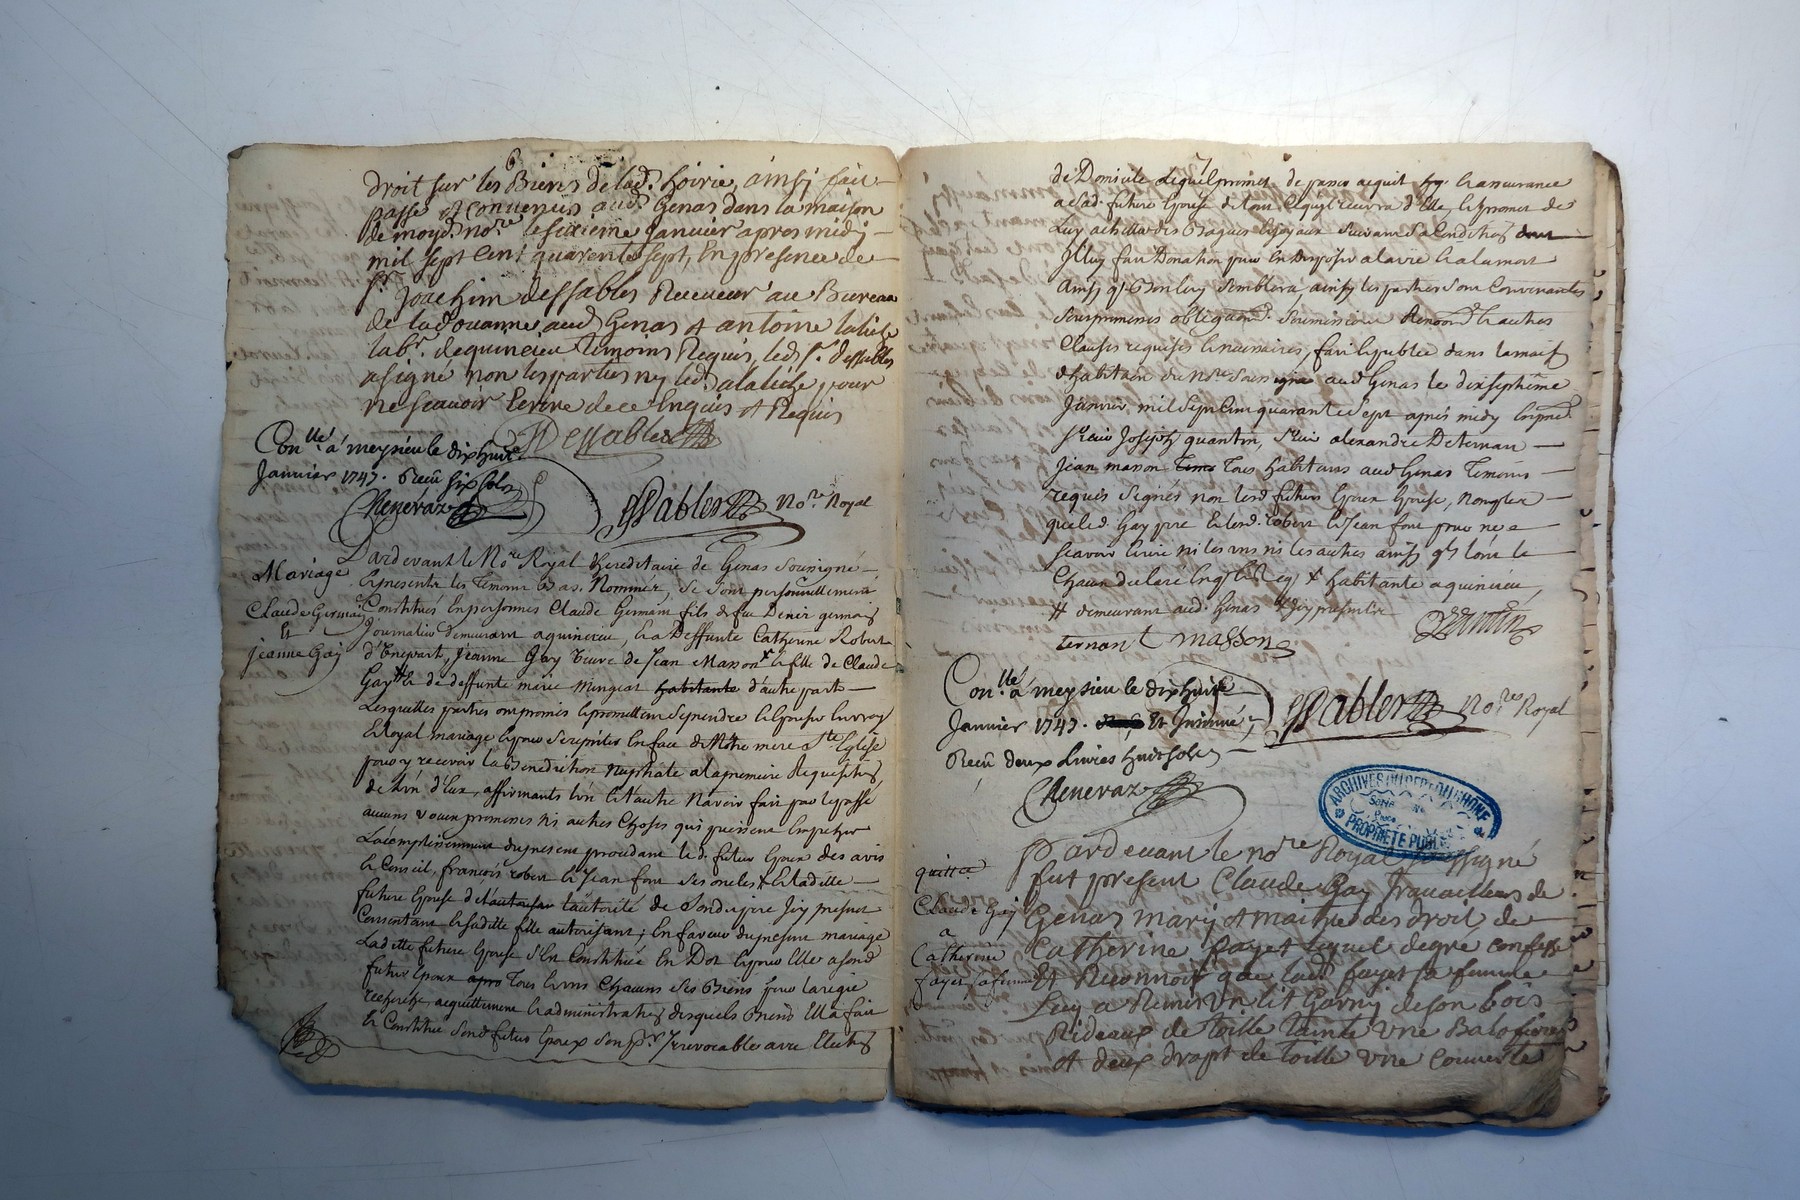 6
droit sur les Biens de lad. hoirie, ainsi fait
passé et convenus aud. Genas dans la maison
de moyd. no.re le sixieme Janvier apres midy
mil sept cent quarente sept, En presence de
Sr. Joachim dessables Receveur au Bureau
de la doüanne aud. Genas et antoine
lab.r de quincieu temoins Requis, led. Sr. dessables
a signé non les parties ny led. pour
ne scavoir Ecrire de ce Enquis et Requis
Dessables
Con.llé a meysieu le dix huit
Janvier 1747. Receu six sols
Reneraz
Pablet No.re Royal
Mariage
Claude Germain
Et
jeanne Gay
Pardevant le No.re Royal hereditaire de Genas Soussigné
Et presents les Temoins Bas Nommés, se sont personnellement
Constitués En personnes Claude Germain fils de feu Denis germain
Journalier demeurant a quincieu, et a deffunte Catherine Robert
d'Unepart, Jeanne Gay veuve de Jean Masson et fille de Claude
Gay et de deffunte marie habitante d'autre part
Lesquelles parties ont promis et promettent se prendre et Epouser En vray
et Loyal mariage et pour ce se presenter En face de Notre mere Ste. Eglise
pour y recevoir la Benediction Nuptiale a la premiere Requisition
de L'un d'Eux, affirmants L'un et L'autre N'avoir fait par le passé
aucuns voeux promesses ni autres choses qui puissent Empecher
L'accomplissement du present procedant led. futur Epoux des avis
et Conseil, françois robert et Jean font ses oncles et Ladite
future Epouse de l'autorité de Sond. pere Icy present
Consentant et sadite fille autorisant; En faveur du present mariage
Ladette future Epouse s'En Constituée En Dot et pour Elle a sond
futur Epoux Tous et uns chacuns ses Biens pour la regie
recherche, acquittement et administration desquels Biens Ella fait
et Constitué Sond. futur Epoux Son Pr.r Irrevocable avec Election
7
de Domicile Lequel promet de passer acquit et assurance
a lad. future Epouse de tout ce qu'il recevra d'Elle, et promet de
Luy achetter des Bagues et joyaux suivant sa Condition
Il luy fait Donation pour En disposer a la vie et a la mort
Ainsy q. Bon luy semblera, ainsy les parties sont Convenantes
Sous promesses obligaons. Soumissions Renond. et autres
Clauses requises et necessaires, fait et publié dans la maison
d'habitaon du No.re Soussigné aud. Genas le dixseptième
Janvier mil sept cent quarante sept après midy En pnce.
Sieur Joseph quantin, Sieur alexandre Deternan
Jean masson Tous habitans aud. Genas Temoins
requis signés non lesd. futurs Epoux Epouse, non plus
que led. Gay pere et lesd. robert et Jean font pour ne
scavoir Ecrire ni les uns ni les autres ainsy q. l'ont le
Chacun declaré Enq. et Req. habitante a quincieu
demeurant aud. Genas Icy present
Quantin
ternant masson
Con.llé a meysieu le dix huit
Janvier 1747. Et Insinué,
Receu deux Livres huit sols
Reneraz
Pablet No.re Royal
ARCHIVES DU DEPT DU RHONE
Serie
PROPRIÉTÉ PUBL
quitta
Claude Gay
a
Catherine
fayet sa femme
Pardevant le no.re Royal soussigné
fut present Claude Gay Travailleur de
Genas mary et maitre des droit de
Catherine fayet Lequel de gré confesse
Et Reconnoit que lad. fayet sa femme
Luy a Remis un lit Garny de son bois
Rideaux de toille tainte une
et deux drapt de toille une couverte